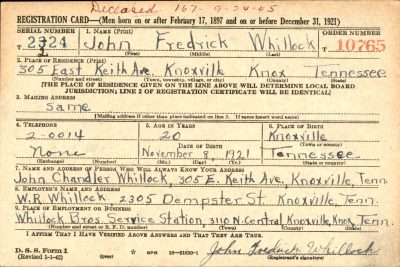 Deceased 167- 9-24-45
REGISTRATION CARD—(Men born on or after February 17, 1897 and on or before December 31, 1921)
SERIAL NUMBER 1. NAME (Print) ORDER NUMBER
T 2324 John Fredrick Whillock T 10765
(First) (Middle) (Last)
2. PLACE OF RESIDENCE (Print)
305 East Keith Ave. Knoxville Knox Tennessee
(Number and street) (Town, township, village, or city) (County) (State)
[THE PLACE OF RESIDENCE GIVEN ON THE LINE ABOVE WILL DETERMINE LOCAL BOARD
JURISDICTION; LINE 2 OF REGISTRATION CERTIFICATE WILL BE IDENTICAL]
3. MAILING ADDRESS
Same
[Mailing address if other than place indicated on line 2. If same insert word same]
4. TELEPHONE 5. AGE IN YEARS 6. PLACE OF BIRTH
2-0014 20 Knoxville
DATE OF BIRTH (Town or county)
None November 8, 1921 Tennessee
(Mo.) (Day) (Yr.) (State or country)
7. NAME AND ADDRESS OF PERSON WHO WILL ALWAYS KNOW YOUR ADDRESS
John Chandler Whillock, 305 E. Keith Ave, Knoxville, Tenn.
8. EMPLOYER'S NAME AND ADDRESS
W.R. Whillock, 2305 Dempster St. Knoxville, Tenn.
9. PLACE OF EMPLOYMENT OR BUSINESS
Whillock Bros. Service Station, 3110 N. Central, Knoxville, Knox, Tenn.
(Number and street or R. F. D. number) (Town) (County) (State)
I AFFIRM THAT I HAVE VERIFIED ABOVE ANSWERS AND THAT THEY ARE TRUE.
D. S. S. Form 1
(Revised 1-1-42) (over) GPO 16-21630-1 John Fredrick Whillock
(Registrant's signature)